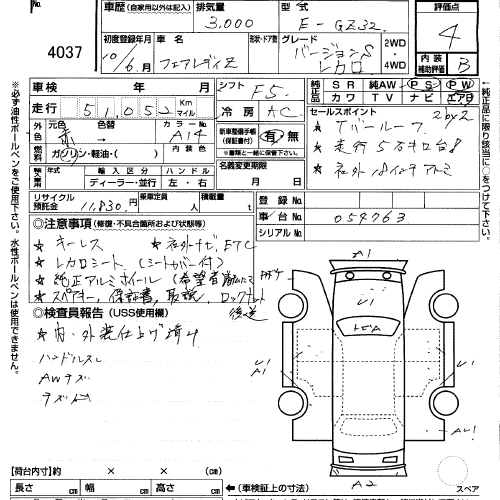 4037
車歴 (自家用以外は記入)
排気量 3,000
型式 E-GZ32
評価点 4
初度登録年月 10/6月
車名 フェアレディZ
形状・ドア数
グレード バージョンS レカロ
2WD
4WD
内装補助評価 B
車検 年 月
シフト F5
純正品 SR 純AW PS PW
カワ TV ナビ エアB
走行 51,052 Km マイル
冷房 AC
セールスポイント
2by2
★ Tバールーフ
★ 走行5万キロ台
★ 社外18インチアルミ
外色 元色 赤 色替
カラーNo. A14
内装色
ガソリン・軽油・( )
新車整備手帳(保証書付) 有 無
※書類と一緒に保管して下さい。
名義変更期限 月 日
輸入車 年式 輸入区分 ハンドル
ディーラー・並行 左・右
リサイクル預託金 11,830 円
乗車定員 人
積載量 t
登録No.
車台No. 059763
シリアルNo.
◎注意事項 (修復・不具合箇所および状態等)
★ キーレス ★ 社外ナビ、ETC
★ レカロシート (シートカバー付)
★ 純正アルミホイール (希望者
★ スペアキー、保証書、取説、ロックナット
後送
◎検査員報告 (USS使用欄)
★ 内・外装仕上げ済み
ハンドルスレ
AWキズ
キズ
A1
U1
A1
U1
A2
スペア
【荷台内寸】約 × × (cm)
長さ cm 幅 cm 高さ cm
(車検証上の寸法)
※必ず油性ボールペンをご使用下さい。水性ボールペンは使用できません。
←純正品に限り○をつけて下さい。